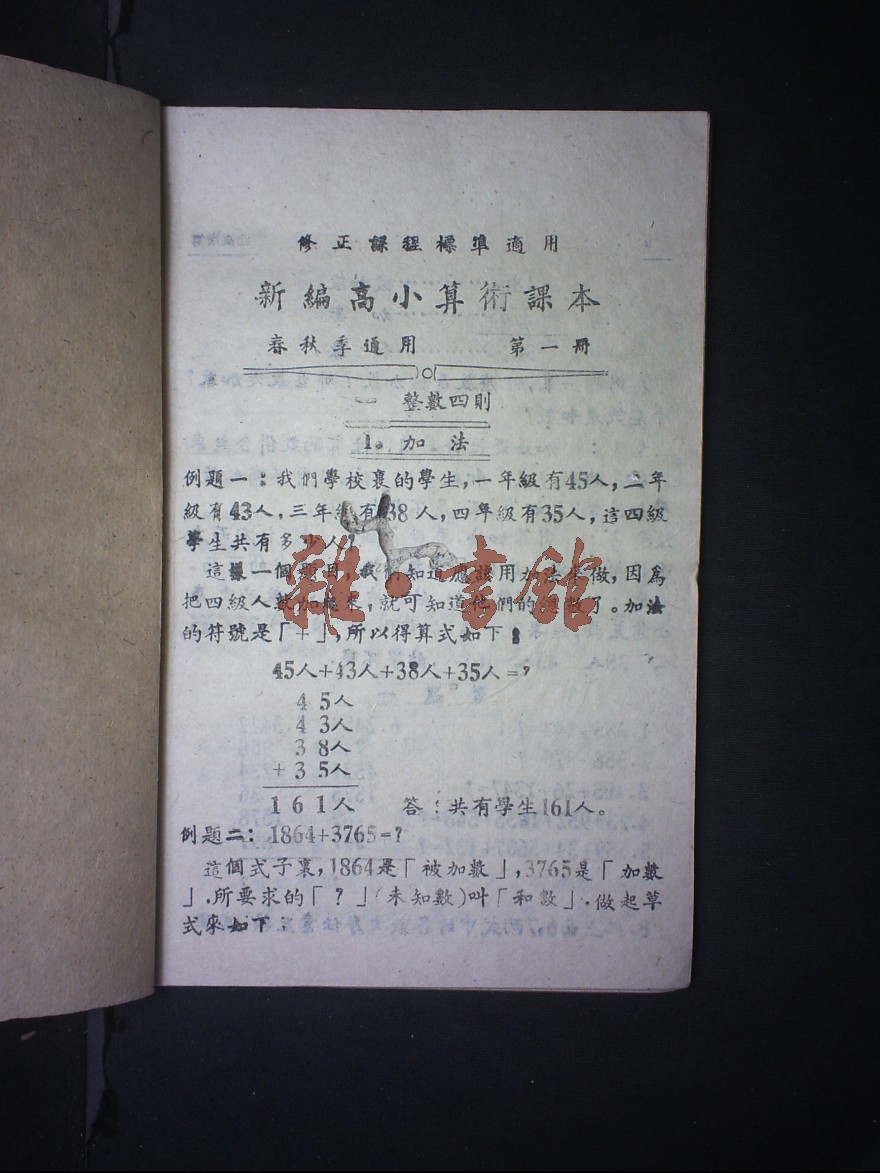 修正課程標準適用
新編高小算術課本
春秋季適用 第一冊
一 整數四則
1。加法
例題一:我們學校裏的學生,一年級有45人,二年
級有43人,三年級有38人,四年級有35人,這四級
學生共有多少人?
這樣一個題目,我們知道應該用加法來做,因爲
把四級人數加起來,就可知道他們的總數了。加法
的符號是「+」,所以得算式如下:
45人+43人+38人+35人=?
45人
43人
38人
+35人
161人 答:共有學生161人。
例題二:1864+3765=?
這個式子裏,1864是「被加數」,3765是「加數
」.所要求的「?」(未知數)叫「和數」.做起草
式來如下:
雜·書館